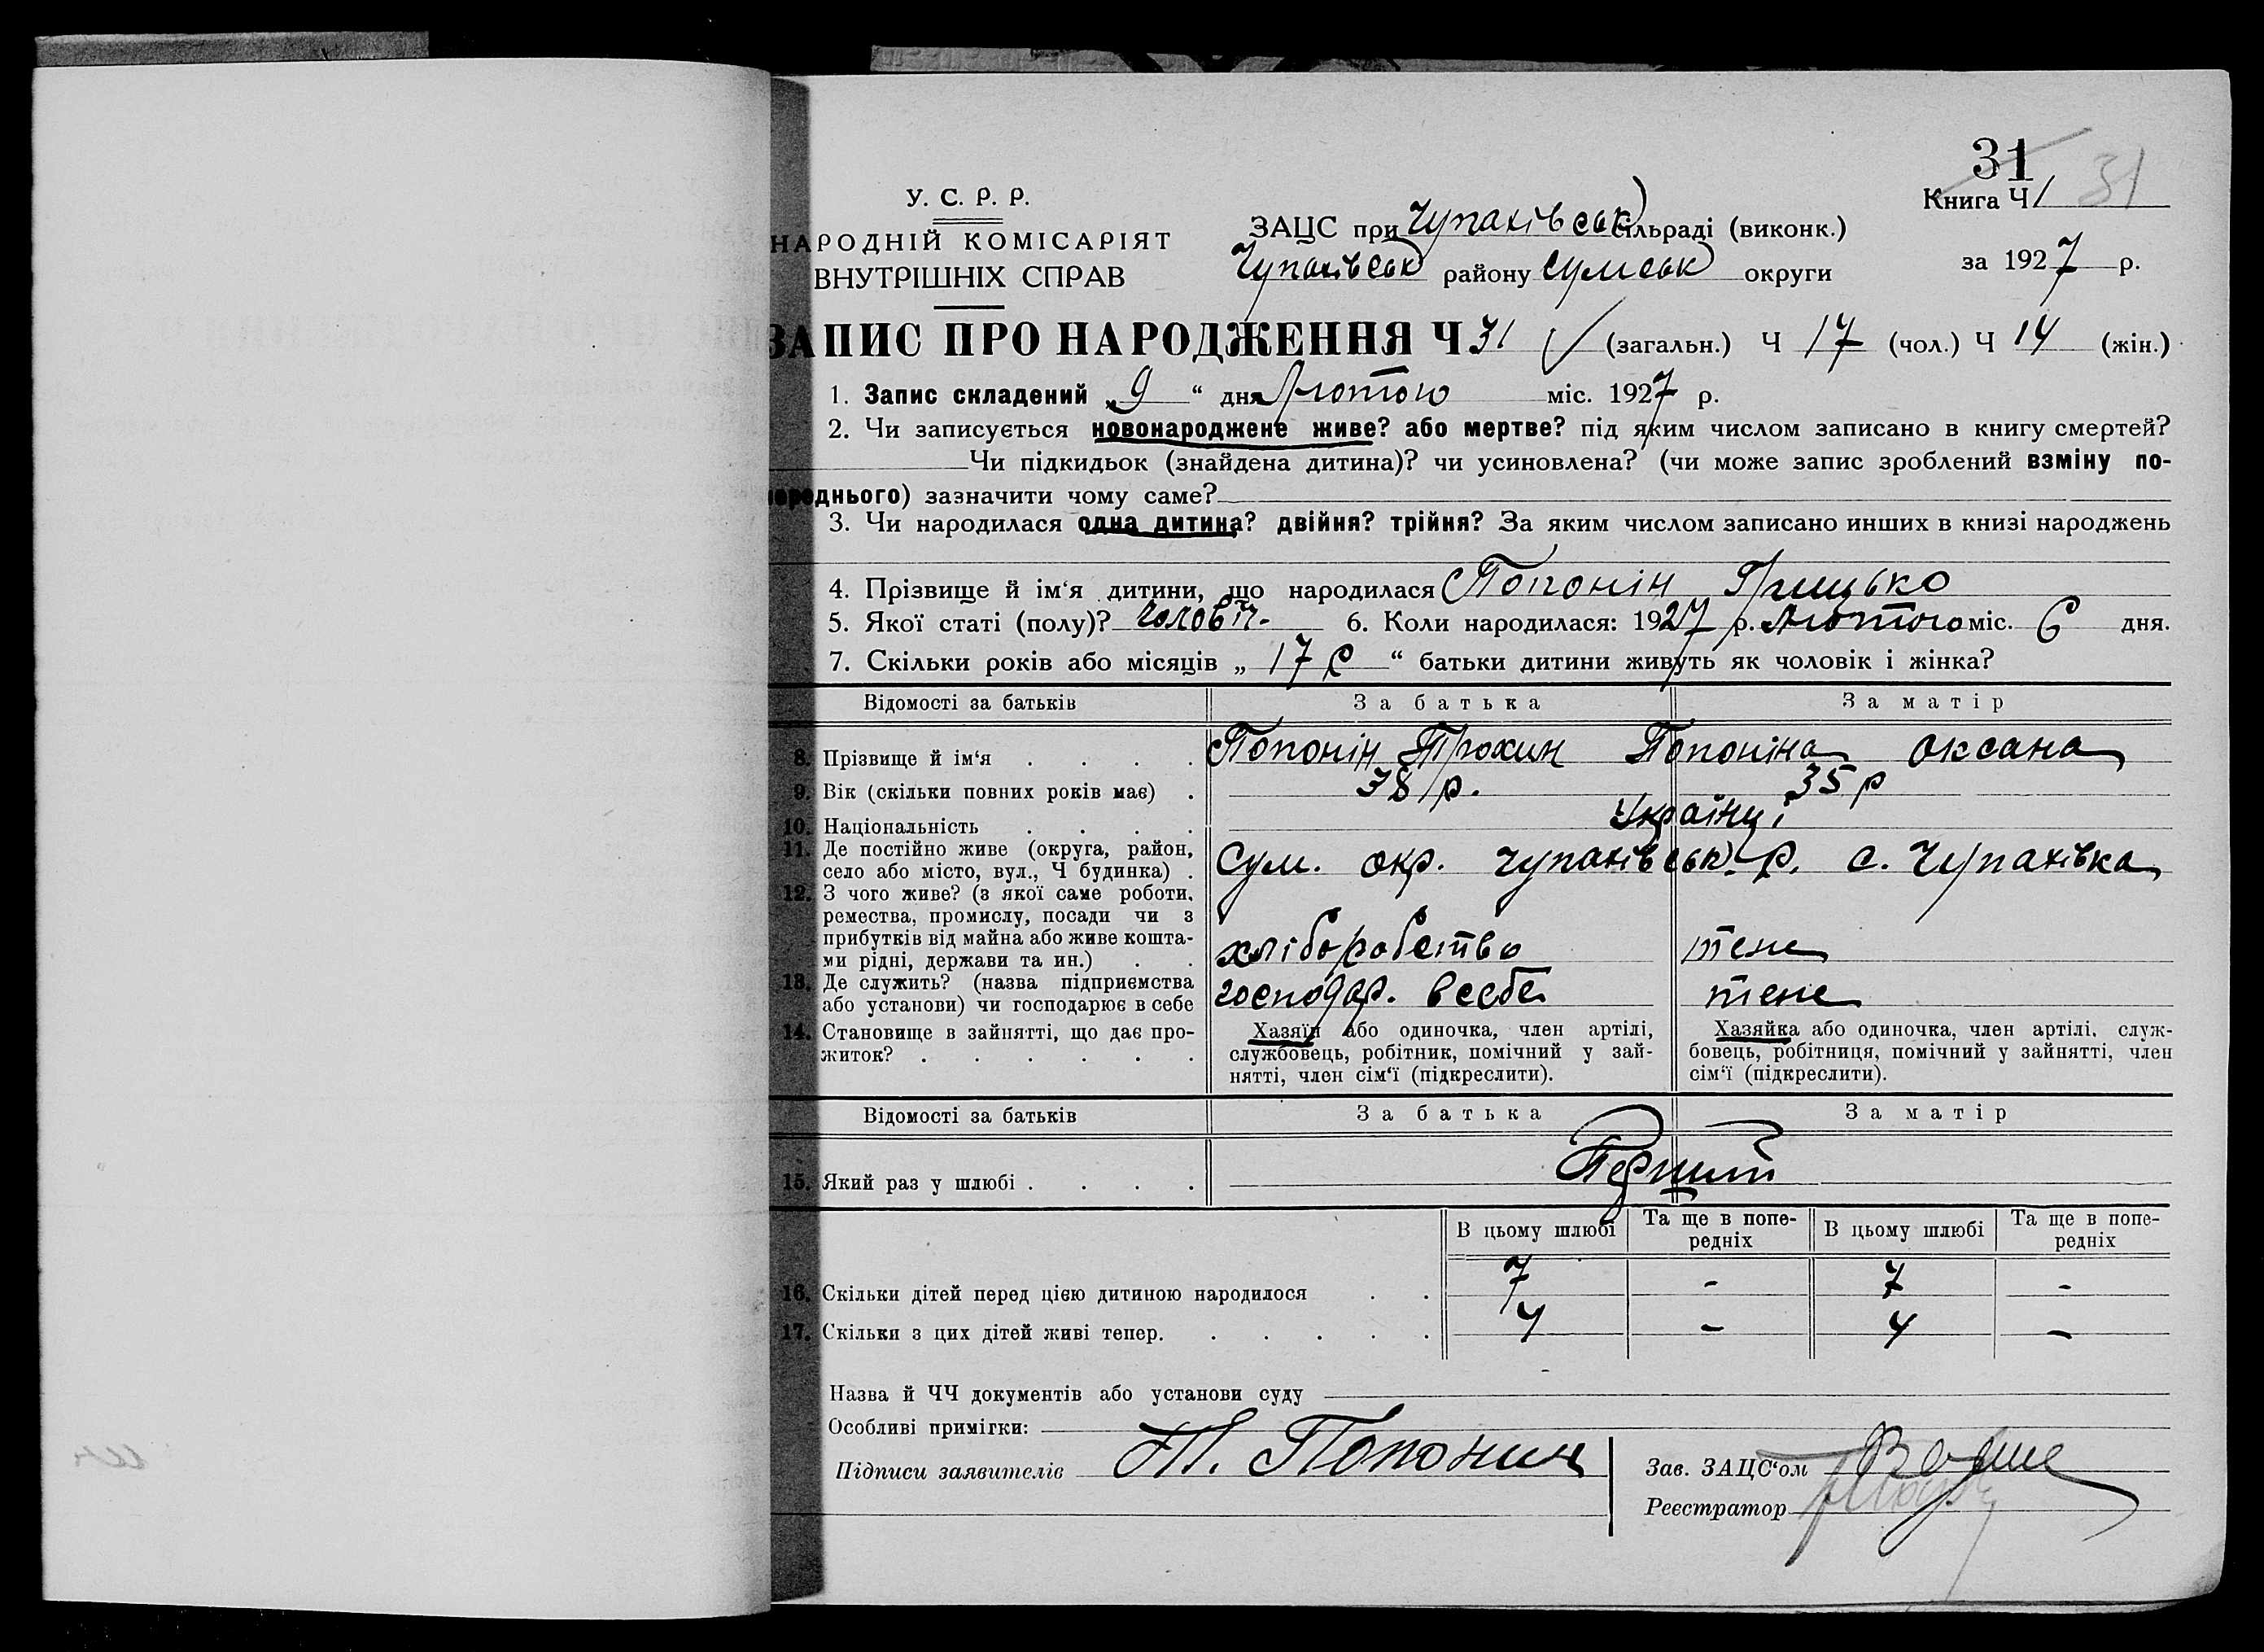 31
У. С. Р. Р.
Книга Ч 1 31
НАРОДНІЙ КОМІСАРІЯТ
ВНУТРІШНІХ СПРАВ
ЗАЦС при Чупахівськ) сільраді (виконк.)
Чупахівськ) району Сумськ) округи
за 1927 р.
ЗАПИС ПРО НАРОДЖЕННЯ Ч 31 (загальн.) Ч 17 (чол.) Ч 14 (жін.)
1. Запис складений „ 9 “ дня Лютого міс. 1927 р.
2. Чи записується новонароджене живе? або мертве? під яким числом записано в книгу смертей?
Чи підкидьок (знайдена дитина)? чи усиновлена? (чи може запис зроблений взміну по-
переднього) зазначити чому саме?
3. Чи народилася одна дитина? двійня? трійня? За яким числом записано инших в книзі народжень
4. Прізвище й ім‘я дитини, що народилася Попонін Грицько
5. Якої статі (полу)? чоловіч. 6. Коли народилася: 1927 р. Лютого міс. 6 дня.
7. Скільки років або місяців „ 17 р “ батьки дитини живуть як чоловік і жінка?
Відомості за батьків За батька За матір
8. Прізвище й ім‘я . . . . Попонін Трохим Попоніна Оксана
9. Вік (скільки повних років має) . 38 р. 35 р
10. Національність . . . . Українці
11. Де постійно живе (округа, район,
село або місто, вул., Ч будинка) . Сум. окр. Чупахівськ). р. с. Чупахівка
12. З чого живе? (з якої саме роботи,
ремества, промислу, посади чи з
прибутків від майна або живе кошта-
ми рідні, держави та ин.) . . хліборобство теж
13. Де служить? (назва підприємства
або установи) чи господарює в себе господар. в себе теж
14. Становище в зайнятті, що дає про-
житок? . . . . . .
Хазяїн або одиночка, член артілі,
службовець, робітник, помічний у зай-
нятті, член сім‘ї (підкреслити).
Хазяйка або одиночка, член артілі, служ-
бовець, робітниця, помічний у зайнятті, член
сім‘ї (підкреслити).
Відомості за батьків За батька За матір
15. Який раз у шлюбі . . . . Перший
В цьому шлюбі Та ще в попе-
редніх В цьому шлюбі Та ще в попе-
редніх
16. Скільки дітей перед цією дитиною народилося . . 7 - 7 -
17. Скільки з цих дітей живі тепер. . . . . . 4 - 4 -
Назва й ЧЧ документів або установи суду
Особливі примітки:
Підписи заявителів Т. Попонин
Зав. ЗАЦС‘ом
Реєстратор